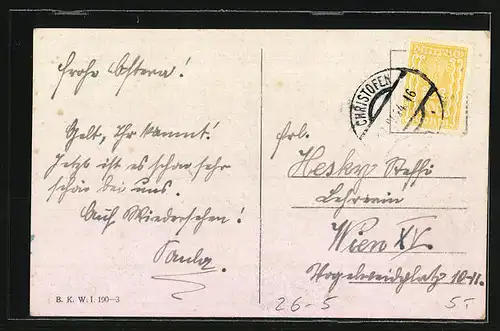 Frohe Ostern!
Gelt, Ihr kommt!
Jetzt ist es schon sehr
schön bei uns.
Auf Wiedersehen!
Paula.
B. K. W. I. 190-3
CHRISTOFEN
Frl.
Hesky Steffi
Lehrerin
Wien XV.
Vogelweidplatz 10
26-5
5.-